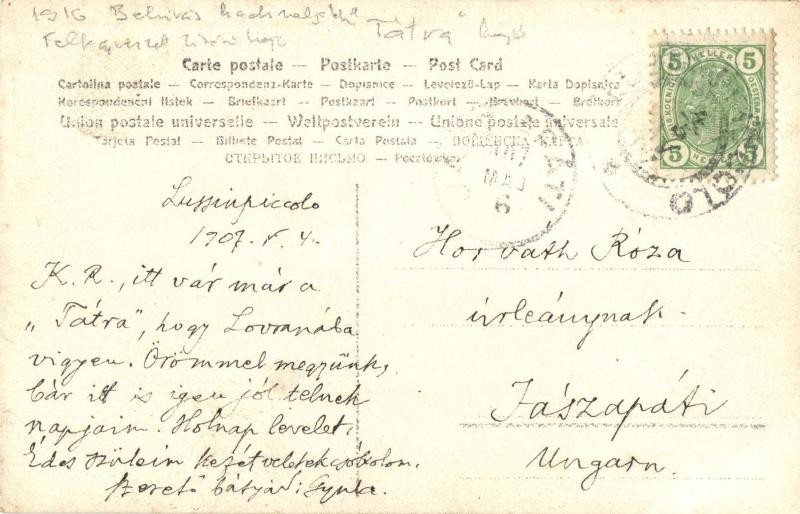 1916
"Tátra"
Carte postale — Postkarte — Post Card
Cartolina postale — Correspondenz-Karte — Dopisnice — Levelező-Lap — Karta Dopisnica
Korespondenční lístek — Briefkaart — Postkaart — Postkort — Brevkort — Brefkort
Union postale universelle — Weltpostverein — Unione postale universale
Tarjeta Postal — Bilhete Postal — Carta Postala — ДОПИСНА КАРТА
ОТКРЫТОЕ ПИСЬМО — Pocztówka
5 HELLER 5
5 5
MAJ
5
Lussinpiccolo
1907. V. 4.
K. R., itt vár már a
"Tátra", hogy Lovranába
vigyen. Örömmel megyünk,
bár itt is igen jól telnek
napjaim. Holnap levelet.
Édes szüleim kezét veletek csókolom.
Szerető bátyád: Gyula.
Horváth Róza
úrleánynak
Jászapáti
Ungarn.